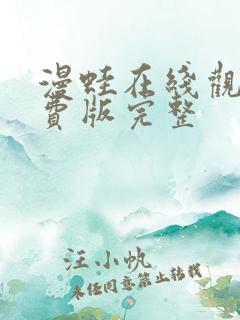 漫蛙在线觀
費版完整
汪小帆
未经同意禁止转载